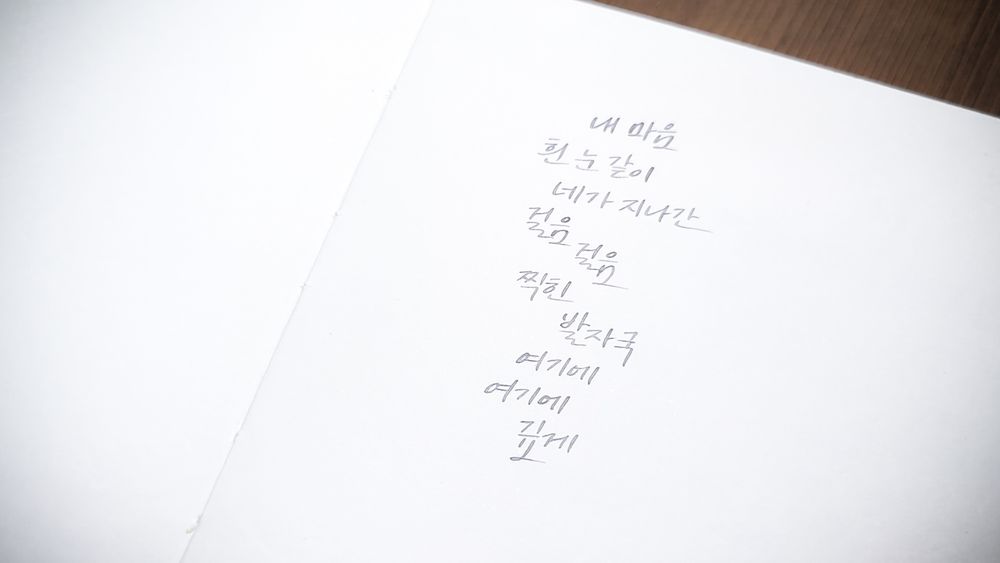 내 마음
흰 눈 같이
네가 지나간
걸음
걸음
찍힌
발자국
여기에
여기에
깊게